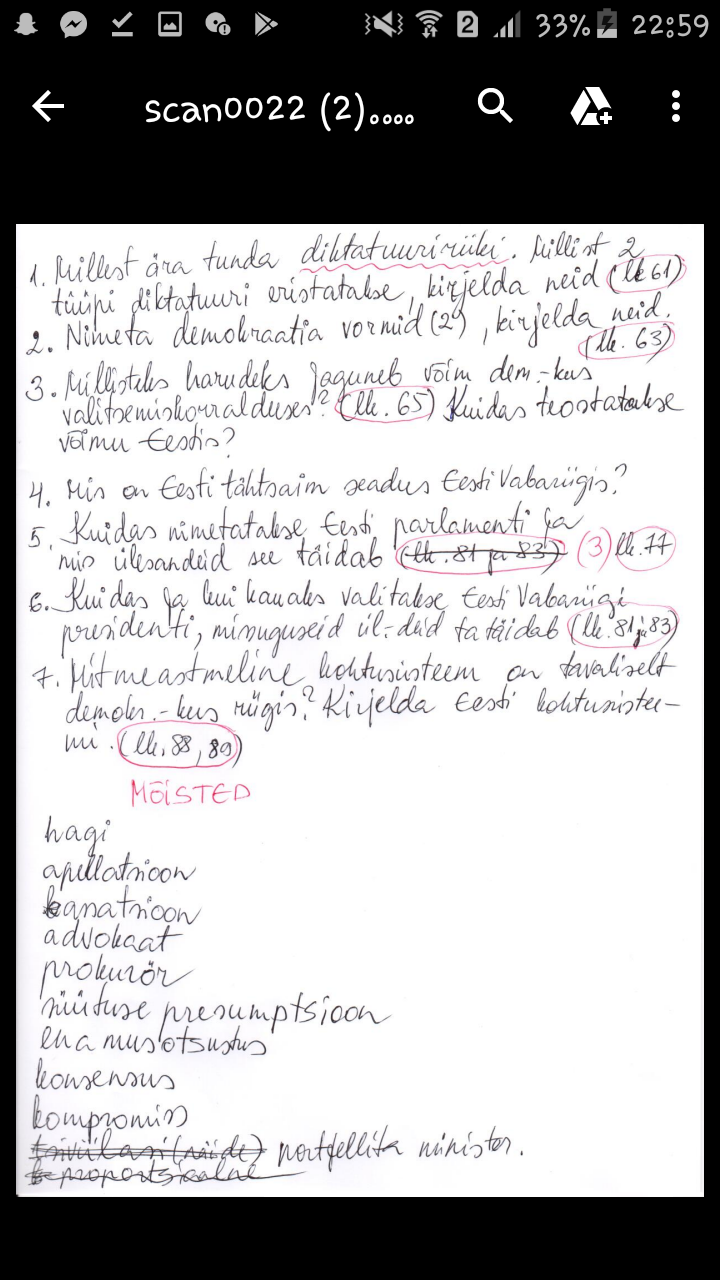 33% 22:59
scan0022 (2)....
1. Millest ära tunda diktatuuririiki. Millist 2
tüüpi diktatuuri eristatakse, kirjelda neid (lk 61)
2. Nimeta demokraatia vormid (2), kirjelda neid.
(lk. 63)
3. Millisteks harudeks jaguneb võim dem.-kus
valitsemiskorralduses? (lk. 65) Kuidas teostatakse
võimu Eestis?
4. Mis on Eesti tähtsaim seadus Eesti Vabariigis?
5. Kuidas nimetatakse Eesti parlamenti ja
mis ülesandeid see täidab (lk. 81 ja 83) (3) lk. 77
6. Kuidas ja kui kauaks valitakse Eesti Vabariigi
presidenti, missuguseid ül.-deid ta täidab (lk. 81 ja 83)
7. Mitmeastmeline kohtusüsteem on tavaliselt
demokr.-kus riigis? Kirjelda Eesti kohtusüstee-
mi. (lk. 88, 89)
MÕISTED
hagi
apellatsioon
kassatsioon
advokaat
prokurör
süütuse presumptsioon
enamusotsustus
konsensus
kompromiss
tsiviilasi (näide) portfellita minister.
proportsioalne